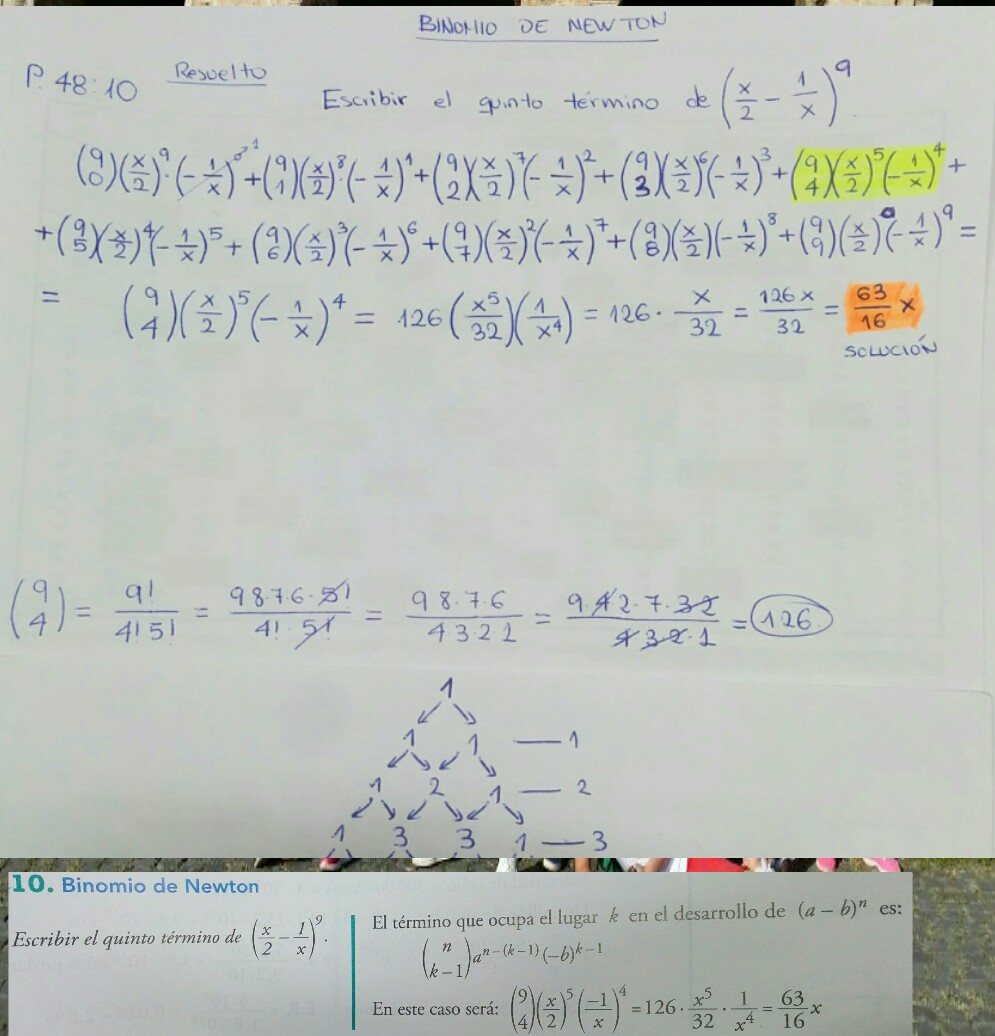 BINOMIO DE NEWTON
P. 48:10 Resuelto
Escribir el quinto término de (x/2 - 1/x)^9.
(9 0)(x/2)^9·(-1/x)^0^1+(9 1)(x/2)^8(-1/x)^1+(9 2)(x/2)^7(-1/x)^2+(9 3)(x/2)^6(-1/x)^3+(9 4)(x/2)^5(-1/x)^4+
+(9 5)(x/2)^4(-1/x)^5+(9 6)(x/2)^3(-1/x)^6+(9 7)(x/2)^2(-1/x)^7+(9 8)(x/2)(-1/x)^8+(9 9)(x/2)^0(-1/x)^9=
= (9 4)(x/2)^5(-1/x)^4 = 126(x^5/32)(1/x^4) = 126·x/32 = 126x/32 = 63/16 x
SOLUCIÓN
(9 4) = 9!/4!5! = 98·7·6·5!/4!·5! = 98·7·6/4321 = 9·42·7·32/432·1 = 126
1
1 1 — 1
1 2 1 — 2
1 3 3 1 — 3
10. Binomio de Newton
Escribir el quinto término de (x/2 - 1/x)^9.
El término que ocupa el lugar k en el desarrollo de (a - b)^n es:
(n k-1)a^n-(k-1)(-b)^k-1
En este caso será: (9 4)(x/2)^5(-1/x)^4 = 126·x^5/32·1/x^4 = 63/16 x